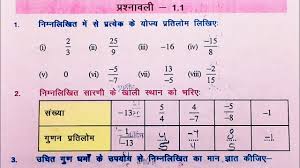 प्रश्नावली – 1.1
1. निम्नलिखित में से प्रत्येक के योज्य प्रतिलोम लिखिए:
(i) 2/3 (ii) 25/9 (iii) -16 (iv) -15/8
(v) 0 (vi) -5/-7 (vii) -13/-5 (viii) 15/-4
2. निम्नलिखित सारणी के खाली स्थान को भरिए:
संख्या -13 5/4 4/-7 -5/-8 -1
गुणन प्रतिलोम
3. उचित गुण धर्मों के उपयोग से निम्नलिखित का मान ज्ञात कीजिए-